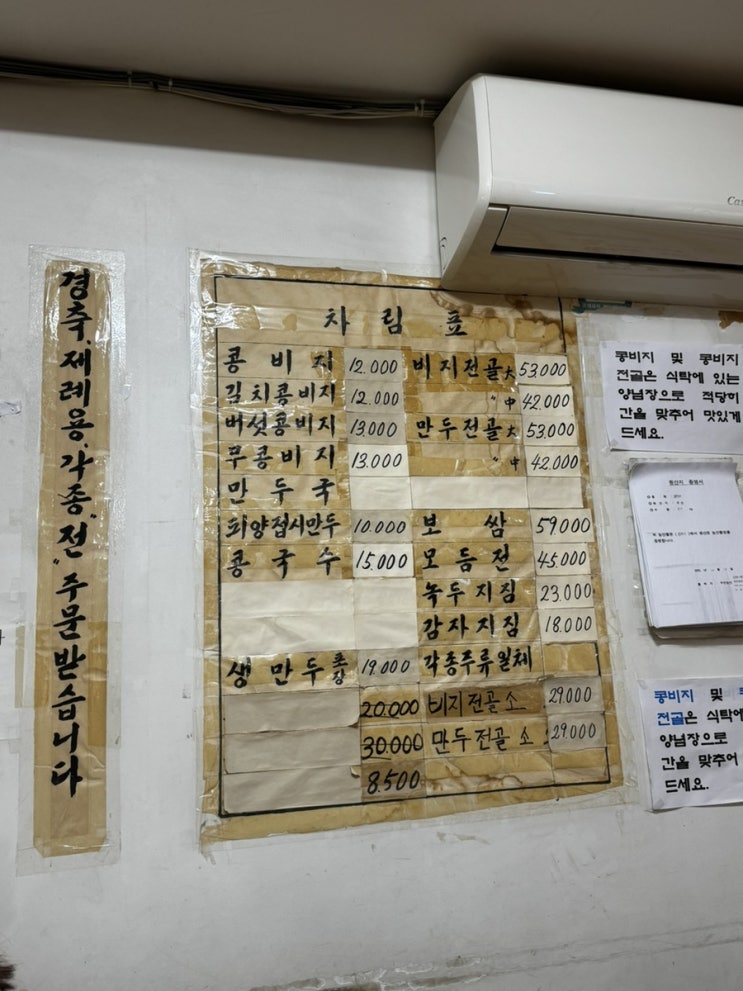 경축, 제례용, 각종 "전" 주문받습니다
차림표
콩비지 12.000
김치콩비지 12.000
버섯콩비지 13.000
무콩비지 13.000
만두국
피양접시만두 10.000
콩국수 15.000
생만두 포장 19.000
20.000
30.000
8.500
비지전골 大 53.000
〃 中 42.000
만두전골 大 53.000
〃 中 42.000
보쌈 59.000
모듬전 45.000
녹두지짐 23.000
감자지짐 18.000
각종주류일체
비지전골 소 29.000
만두전골 소 29.000
콩비지 및 콩비지
전골은 식탁에 있는
양념장으로 적당히
간을 맞추어 맛있게
드세요.
원산지 증명서
콩비지 및
전골은 식탁에
양념장으로
간을 맞추어
드세요.